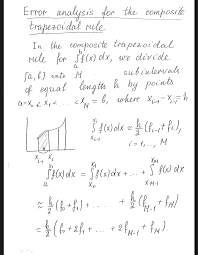 Error analysis for the composite
trapezoidal rule
In the composite trapezoidal
rule for ∫_a^b f(x) dx, we divide
[a, b] into M subintervals
of equal length h by points
a = x₀ < x₁ < ... < x_M = b, where x_{i+1} - x_i = h
∫_{x_{i-1}}^{x_i} f(x) dx ≈ h/2 (f_{i-1} + f_i),
i = 1, ..., M
x_{i-1} x_i
∫_a^b f(x) dx = ∫_{x_0}^{x_1} f(x) dx + ... + ∫_{x_{M-1}}^{x_M} f(x) dx
≈ h/2 (f₀ + f₁) + ... + h/2 (f_{M-1} + f_M)
= h/2 (f₀ + 2f₁ + ... + 2f_{M-1} + f_M).